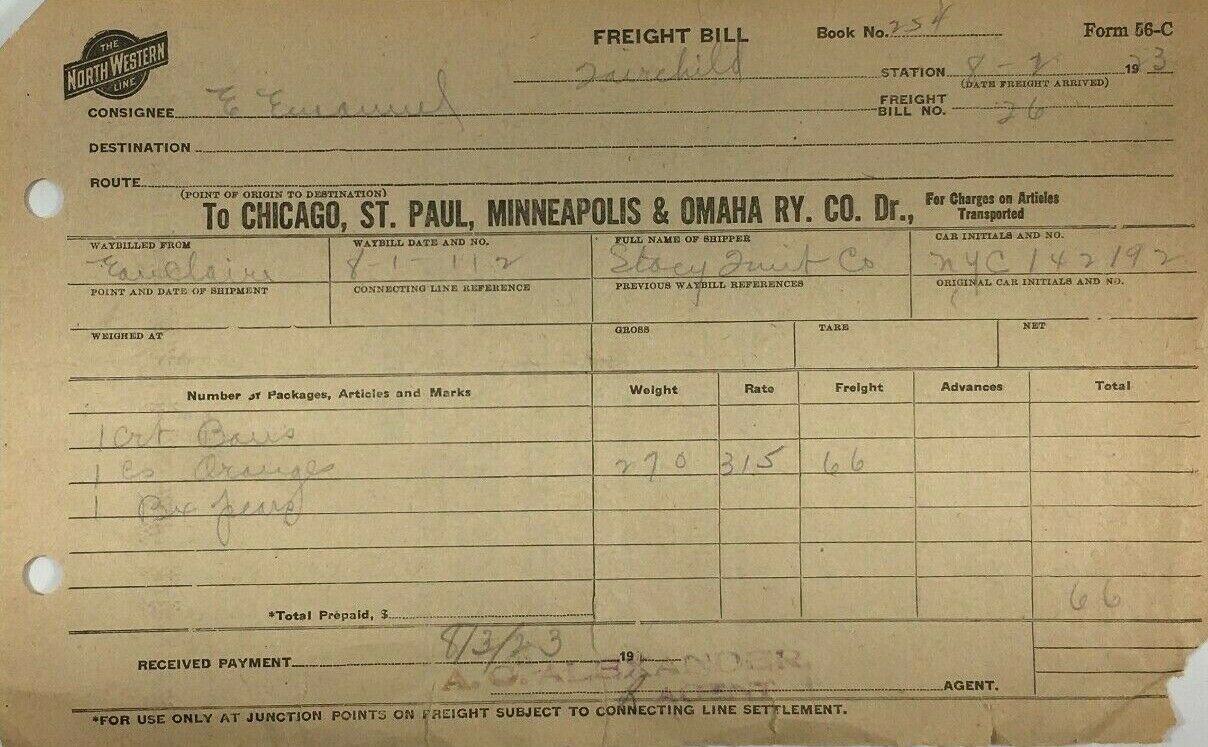 THE
NORTH WESTERN
LINE
FREIGHT BILL
Book No. 254
Form 56-C
Fairchild STATION 8-2 1923
(DATE FREIGHT ARRIVED)
CONSIGNEE E Emanuel
FREIGHT BILL NO. 26
DESTINATION
ROUTE
(POINT OF ORIGIN TO DESTINATION)
To CHICAGO, ST. PAUL, MINNEAPOLIS & OMAHA RY. CO. Dr., For Charges on Articles Transported
WAYBILLED FROM WAYBILL DATE AND NO. FULL NAME OF SHIPPER CAR INITIALS AND NO.
Eau Claire 8-1-112 Stacy Fruit Co NYC 142192
POINT AND DATE OF SHIPMENT CONNECTING LINE REFERENCE PREVIOUS WAYBILL REFERENCES ORIGINAL CAR INITIALS AND NO.
WEIGHED AT GROSS TARE NET
Number of Packages, Articles and Marks Weight Rate Freight Advances Total
1 Crt
1 Cs Oranges 270 315 66
1 Bx pears
66
*Total Prepaid, $
RECEIVED PAYMENT 8/3/23 19
A. C. ALEXANDER,
AGENT
AGENT.
*FOR USE ONLY AT JUNCTION POINTS ON FREIGHT SUBJECT TO CONNECTING LINE SETTLEMENT.